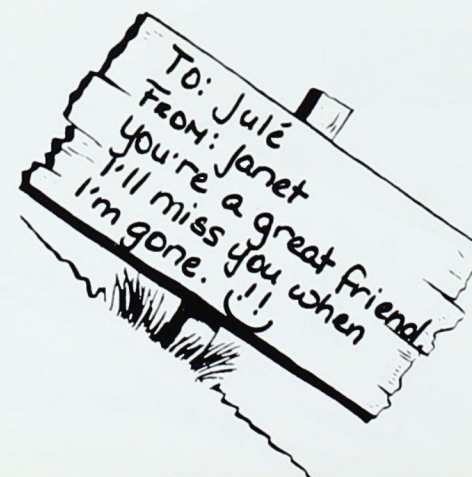 TO: Julé
FROM: Janet
you're a great friend.
I'll miss you when
I'm gone. !!